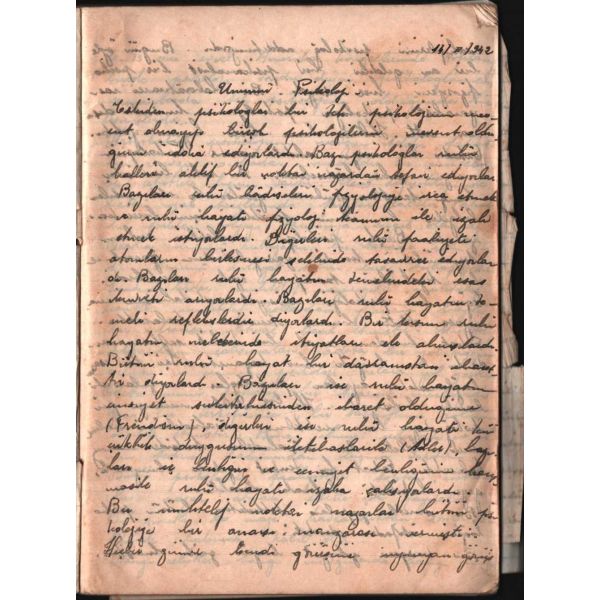 11/II/1942
Umumi Psikoloji
Eskiden psikologlar bir tek psikolojinin mev-
cut olmayıp birçok psikolojilerin mevcut oldu-
ğunu iddia ediyorlardı. Bazı psikologlar ruhi
halleri aktif bir noktai nazardan tefsir ediyorlar
Bazıları ruhi hâdiseleri fizyolojiye irca etmek
ve ruhi hayatı fizyoloji kanunu ile izah
etmek istiyorlardı. Diğerleri ruhi faaliyeti
atomların birleşmesi şeklinde tasavvur ediyorlar
dı. Bazıları ruhi hayatın temelindeki esas
arıyorlardı. Bazıları ruhi hayatın te-
meli reflekslerdir diyorlardı. Bir kısmı ruhi
hayatın itiyatları ele almışlardı
Bütün ruhi hayat bir davranıştan ibaret-
tir diyorlardı. Bazıları ise ruhi hayatın
cinsiyet ibaret olduğunu
(Freudism), diğerleri ise ruhi hayatı kü
çüklük duygusunun (Adler), bazı-
ları ise benliğin ve cemiyet
ruhi hayatı izaha çalışıyorlardı.
Bu muhtelif noktai nazarlar bütün psi
kolojiye bir anarşi manzarası vermişti.
Her zümre kendi görüşüne uymayan görüş